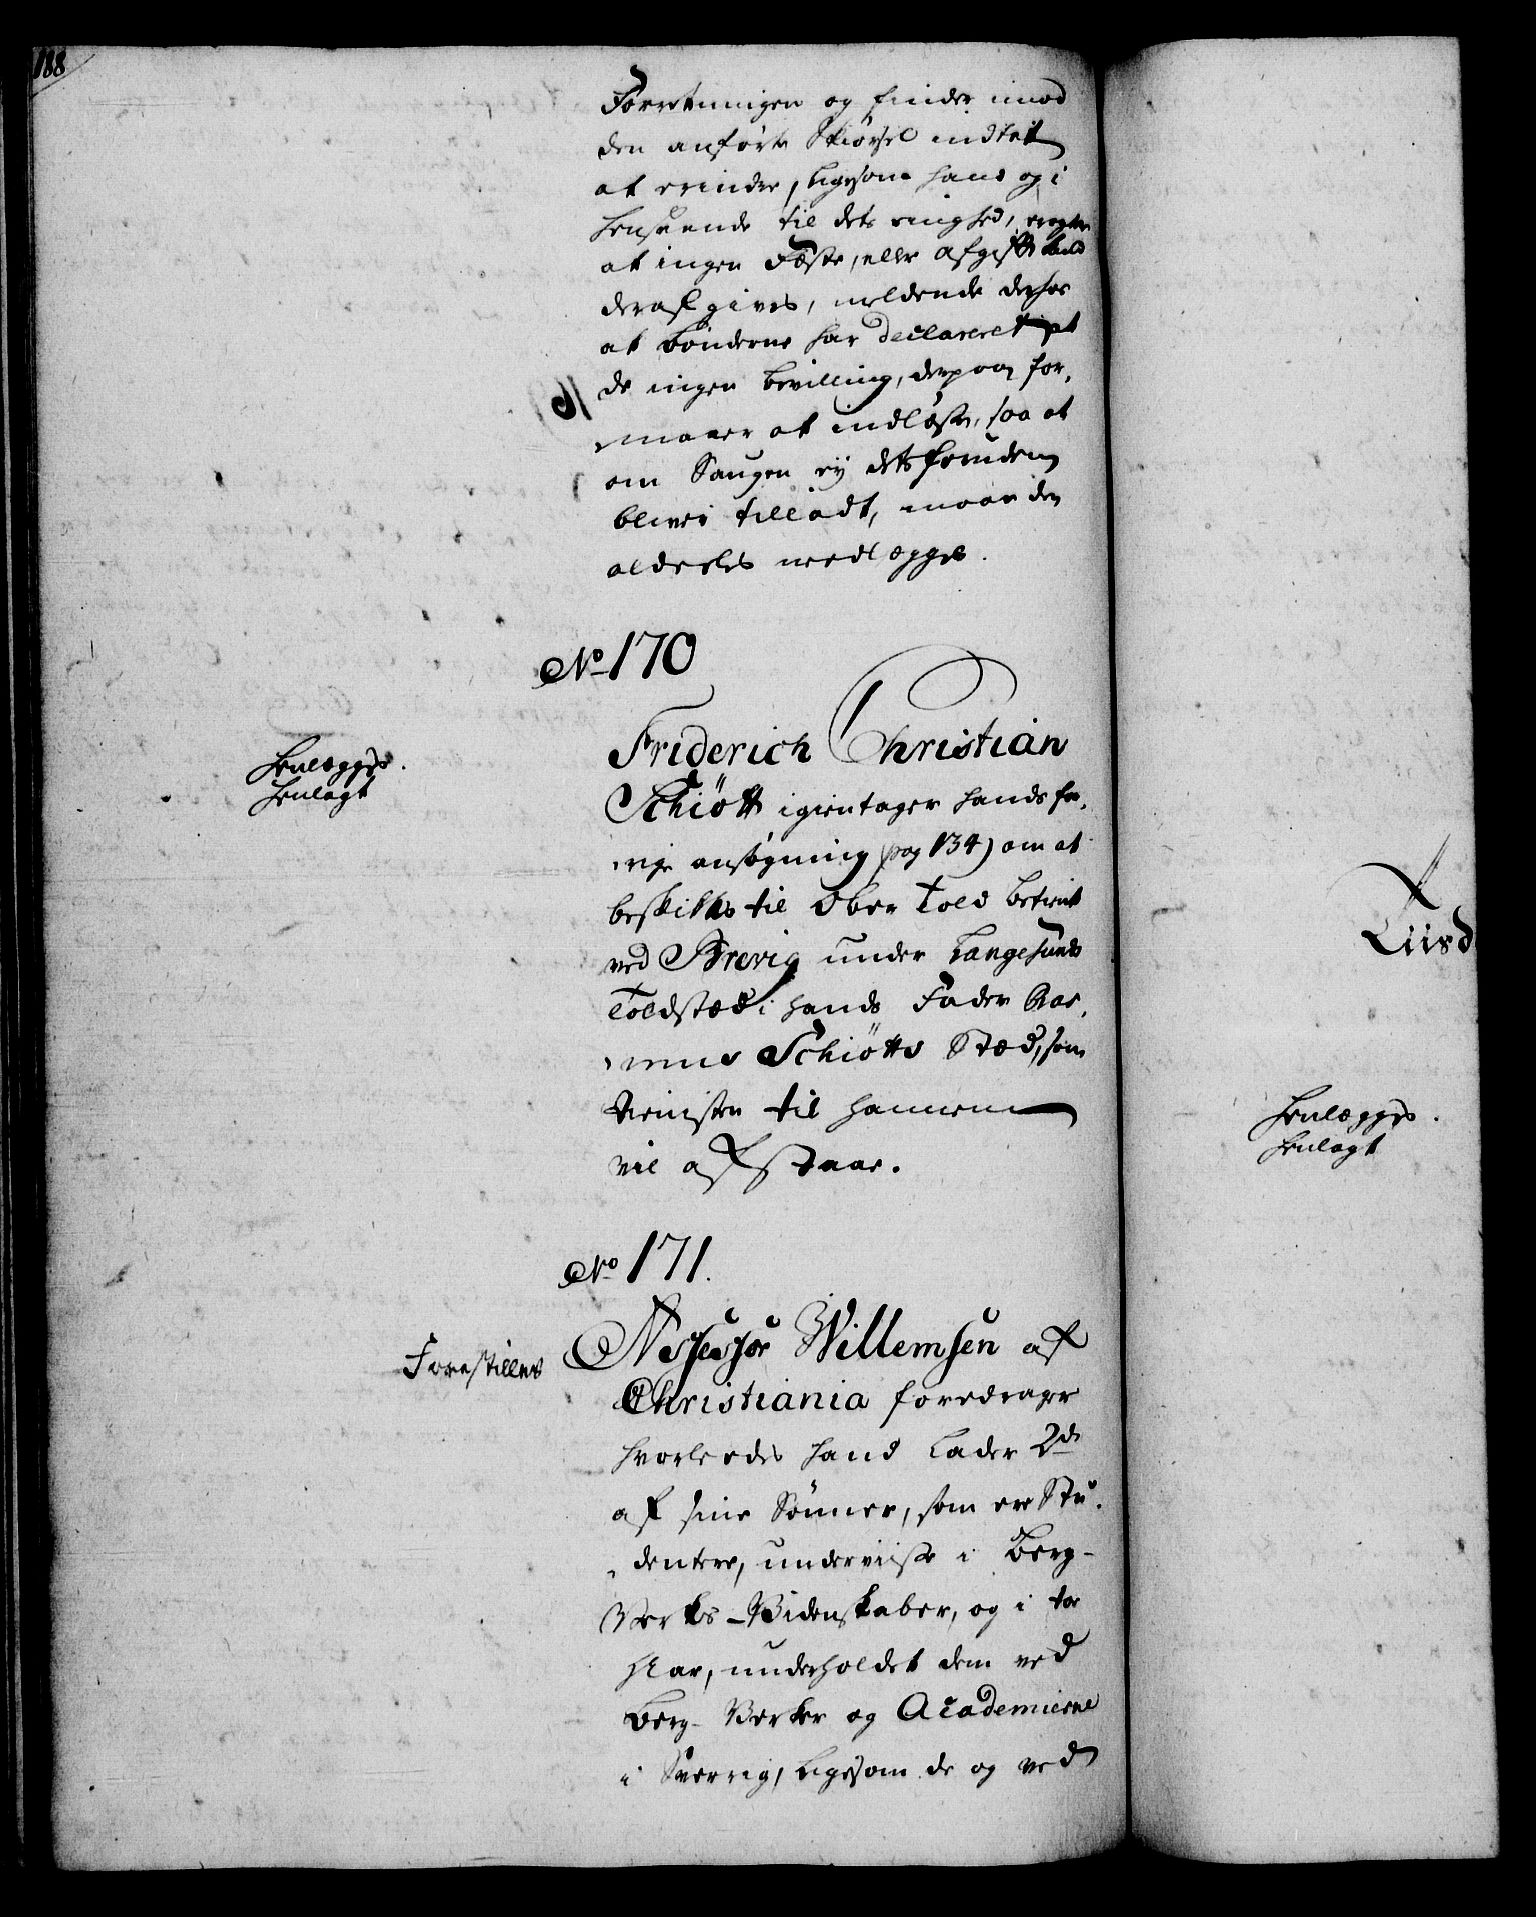 188
Forretningen og finder imod
den anførte Skiørsel indtet
at erindre, ligesom hand og i
henseende til dets ringhed, eragter
at ingen Fæste, eller Afgift kand
deraf gives, meldende derhos
at bønderne har declareret at
de ingen bevilling, derpaa for-
maaer at indløse, saa at
om Saugen ej dets foruden
bliver tilladt, maae den
aldeeles nedlægges.
No 170
Henlægges.
henlagt
Friderich Christian
Schiøtt igientager hands for-
rige ansøgning (pag 134) om at
beskikkes til Ober Told betient
ved Brevig under Langesunds
Toldsted i hands Fader Ras-
mus Schiøtts Sted, som
tienisten til hannem
vil afstaae.
No 171.
Forestilles
Assessor Willemsen af
Christiania foredrager
hvorledes hand lader 2de
af sine Sønner, som ere Stu-
dentere, underviise i Berg-
Verks-Videnskaber, og i toe
Aar, underholdet dem ved
Berg-Verker og Academierne
i Sverrig, ligesom de og ved
Liisd
Henlægges.
henlagt